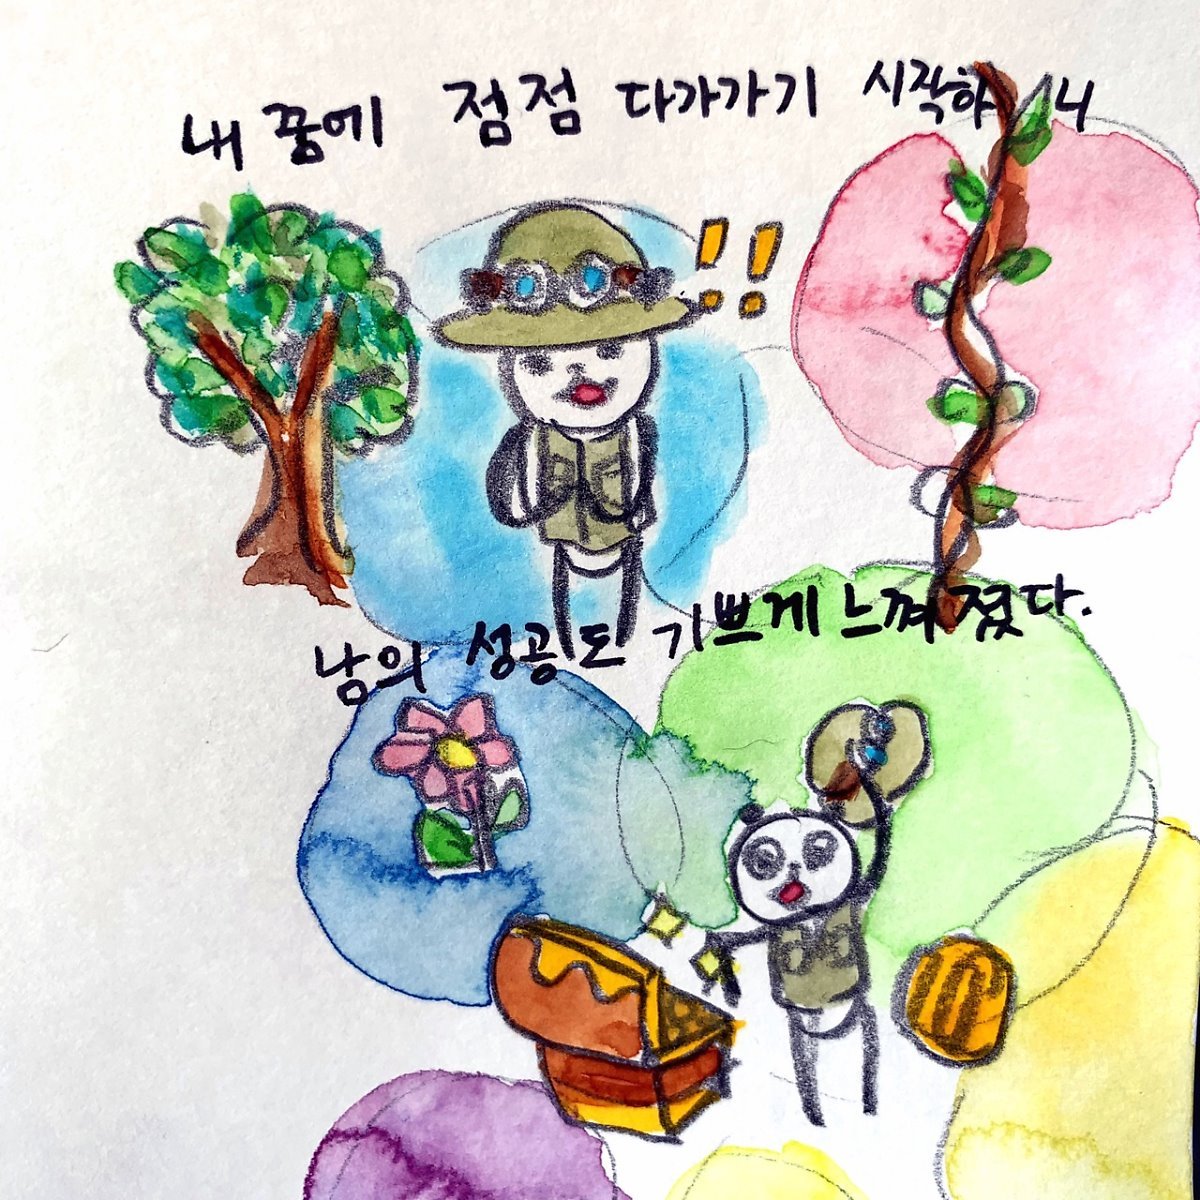 내 꿈에 점점 다가가기 시작하니
!!
남의 성공도 기쁘게 느껴졌다.